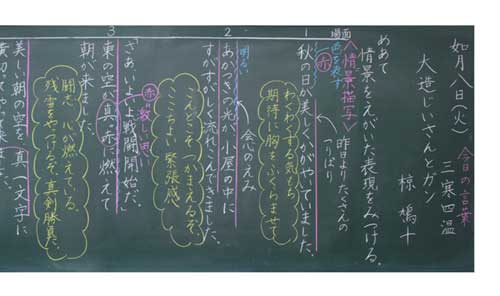 如月八日（火）
今日の言葉
三寒四温
大造じいさんとガン
椋 鳩十
めあて
情景をえがいた表現をみつける。
場面
色を表す
〈情景描写〉
昨日よりたくさんの
つりばり
1
赤
秋の日が美しくかがやいていました。
わくわくする気もち
期待に胸をふくらませて
会心のえみ
2
明るい
あかつきの光が小屋の中に
すがすがしく流れこんできました。
こんどこそつかまえるぞ。
ここちよい緊張感
赤
激しい思い
3
「さあ、いよいよ戦闘開始だ。」
東の空が真っ赤に燃えて
朝が来ました。
闘志 心が燃えている。
残雪をやっつけるぞ。真剣勝負だ。
美しい朝の空を、真一文字に